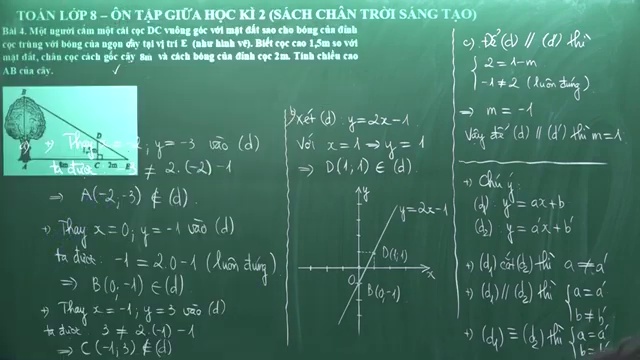 TOÁN LỚP 8 – ÔN TẬP GIỮA HỌC KÌ 2 (SÁCH CHÂN TRỜI SÁNG TẠO)
Bài 4. Một người cắm một cái cọc DC vuông góc với mặt đất sao cho bóng của đỉnh
cọc trùng với bóng của ngọn cây tại vị trí E (như hình vẽ). Biết cọc cao 1,5m so với
mặt đất, chân cọc cách gốc cây 8m và cách bóng của đỉnh cọc 2m. Tính chiều cao
AB của cây.
B
D
A
8m
C
2m
E
+) Thay x = -2, y = -3 vào (d)
ta được -3 ≠ 2.(-2)-1
=> A(-2,-3) ∉ (d).
+) Thay x = 0; y = -1 vào (d)
ta được: -1 = 2.0-1 (luôn đúng)
=> B(0,-1) ∈ (d)
+) Thay x = -1; y = 3 vào (d)
ta được: 3 ≠ 2.(-1)-1
=> C(-1;3) ∉ (d)
b) Xét (d) y = 2x-1
Với x = 1 => y = 1
=> D(1;1) ∈ (d).
y
y = 2x-1
D(1;1)
x
O
B(0,-1)
c) Để (d) // (d') thì
2 = 1-m
-1 ≠ 2 (luôn đúng)
=> m = -1
Vậy để (d) // (d') thì m = 1
+) Chú ý:
(d1) y = ax+b
(d2) y = a'x+b'
+) (d1) cắt (d2) thì a ≠ a'
+) (d1) // (d2) thì a = a'
b ≠ b'
+) (d1) ≡ (d2) thì a = a'
b = b'